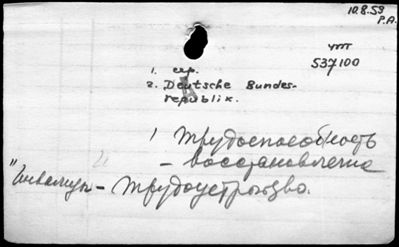 10.8.59
P.A.
537100
1. сер.
2. Deutsche Bundes-
republik.
1 Трудоспособность
- восстановление
"Инвалиды - трудоустройство.